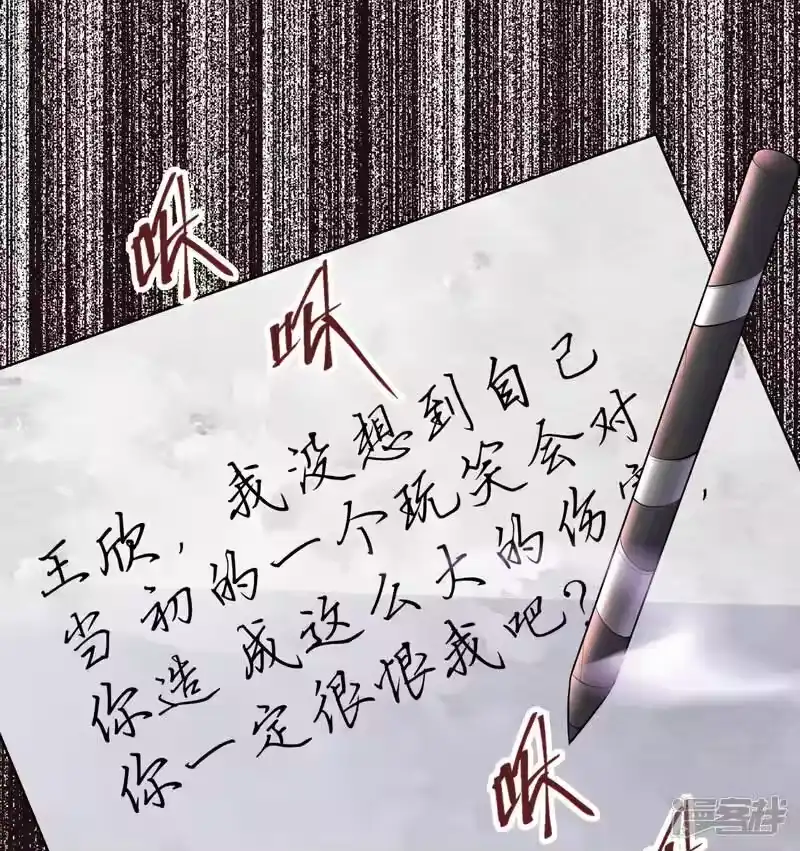 唰
唰
王欣，我没想到自己
当初的一个玩笑会对
你造成这么大的伤害，
你一定很恨我吧？
唰
唰
漫客社